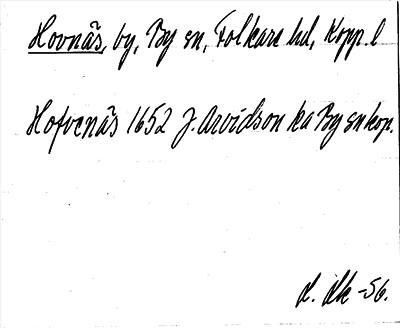 Hovnäs, by, By sn, Folkare hd, Kopp. l
Hofvenäs 1652 J. Arvidson ka By sn kop.
-56.